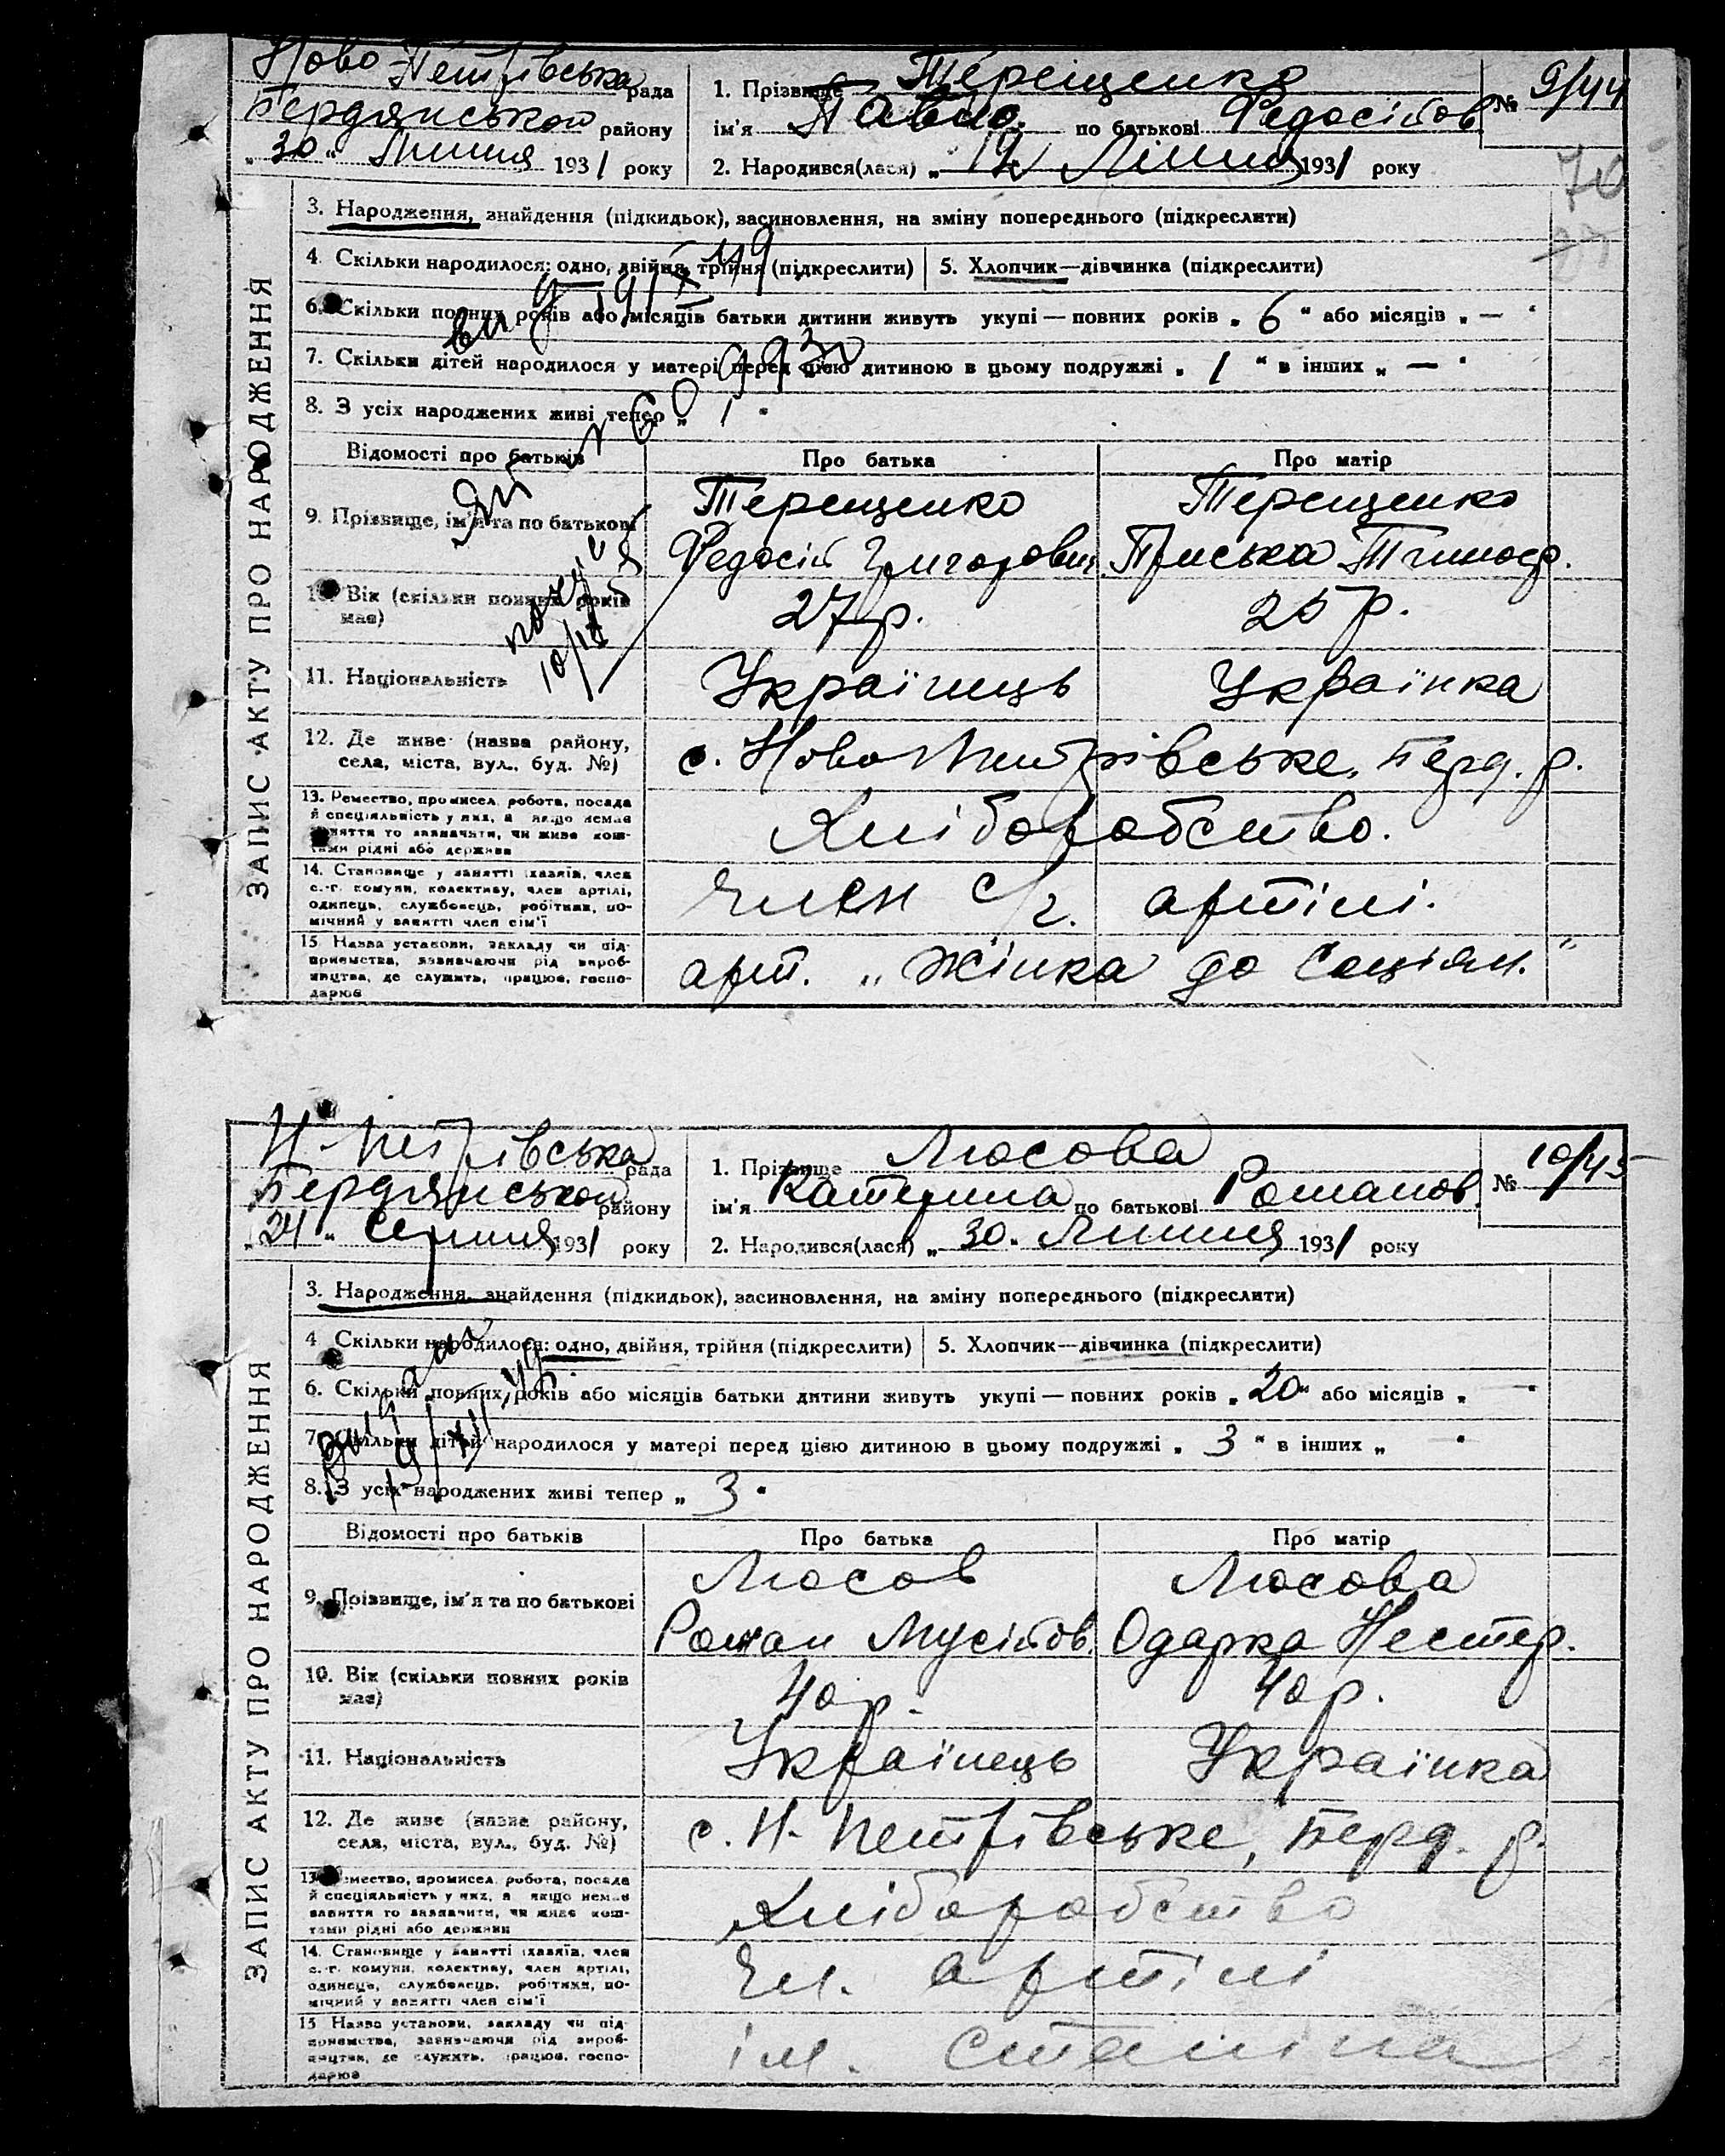 Ново Петрівська рада
Бердянської району
„30" Липня 1931 року
1. Прізвище Терещенко
ім'я Павло. по батькові Федосійов
2. Народився(лася) „12 Липня 1931 року
№ 9/44
70
3. Народження, знайдення (підкидьок), засиновлення, на зміну попереднього (підкреслити)
4. Скільки народилося: одно, двійня, трійня (підкреслити)
5. Хлопчик—дівчинка (підкреслити)
6. Скільки повних років або місяців батьки дитини живуть укупі — повних років „ 6 " або місяців „ — "
7. Скільки дітей народилося у матері перед цією дитиною в цьому подружжі „ 1 " в інших „ — "
8. З усіх народжених живі тепер „ 1 "
ЗАПИС АКТУ ПРО НАРОДЖЕННЯ
Відомості про батьків
Про батька
Про матір
9. Прізвище, ім'я та по батькові
Терещенко
Федосій Григорович
Терещенко
Приська Тимоф.
10. Вік (скільки повних років
має)
27 р.
25 р.
11. Національність
Українець
Українка
12. Де живе (назва району,
села, міста, вул., буд. №)
с. Ново Петрівське, Берд. р.
13. Ремество, промисел, робота, посада
й спеціяльність у них, а якщо немає
заняття то зазначити, чи живе кош-
тами рідні або держави
Хліборобство.
14. Становище у занятті (хазяїн, член
с.-г. комуни, колективу, член артілі,
одинець, службовець, робітник, по-
мічний у занятті член сім'ї
Член с/г. артілі.
15. Назва установи, закладу чи під-
приємства, зазначаючи рід вироб-
ництва, де служить, працює, госпо-
дарює
арт. „Жінка до соціял."
Н-Петрівська рада
Бердянської району
„24" Серпня 1931 року
1. Прізвище Люсова
ім'я Катерина по батькові Романов.
2. Народився(лася) „30. Липня 1931 року
№ 10/45
3. Народження, знайдення (підкидьок), засиновлення, на зміну попереднього (підкреслити)
4. Скільки народилося: одно, двійня, трійня (підкреслити)
5. Хлопчик—дівчинка (підкреслити)
6. Скільки повних років або місяців батьки дитини живуть укупі — повних років „ 20 " або місяців „ — "
7. Скільки дітей народилося у матері перед цією дитиною в цьому подружжі „ 3 " в інших „ — "
8. З усіх народжених живі тепер „ 3 "
ЗАПИС АКТУ ПРО НАРОДЖЕННЯ
Відомості про батьків
Про батька
Про матір
9. Прізвище, ім'я та по батькові
Люсов
Роман Мусійов.
Люсова
Одарка Нестер.
10. Вік (скільки повних років
має)
40 р.
40 р.
11. Національність
Українець
Українка
12. Де живе (назва району,
села, міста, вул., буд. №)
с. Н-Петрівське, Берд. р.
13. Ремество, промисел, робота, посада
й спеціяльність у них, а якщо немає
заняття то зазначити, чи живе кош-
тами рідні або держави
Хліборобство
14. Становище у занятті (хазяїн, член
с.-г. комуни, колективу, член артілі,
одинець, службовець, робітник, по-
мічний у занятті член сім'ї
Чл. артілі
15. Назва установи, закладу чи під-
приємства, зазначаючи рід вироб-
ництва, де служить, працює, госпо-
дарює
ім. Сталіна